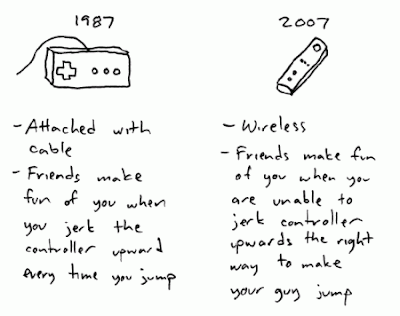 1987
- Attached with
cable
- Friends make
fun of you when
you jerk the
controller upward
every time you jump
2007
- Wireless
- Friends make fun
of you when you
are unable to
jerk controller
upwards the right
way to make
your guy jump